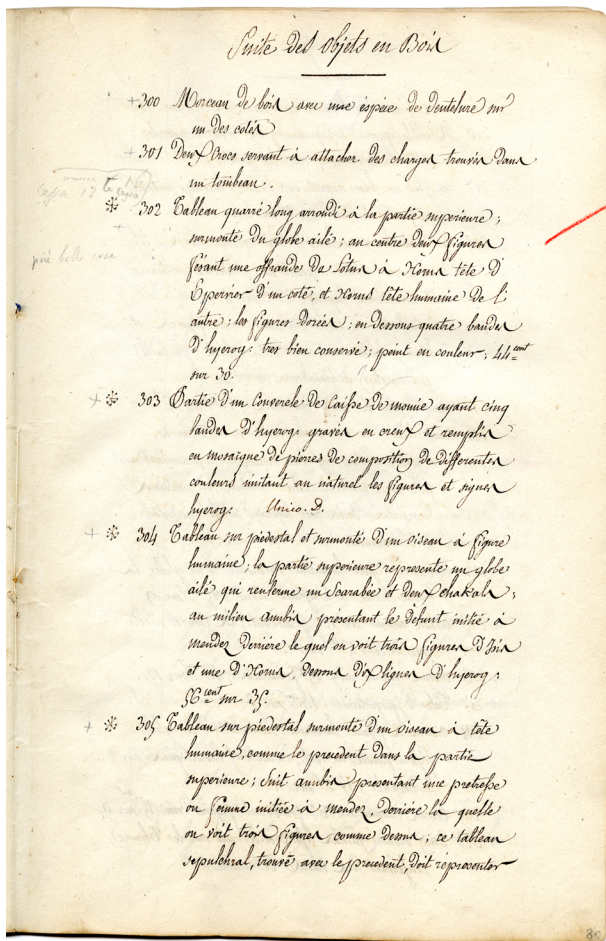 Suite des objets en Bois
+ 300 Morceau de bois avec une espéce de dentelure sur
un des cotés
+ 301 Deux Crocs servant à attacher des charges trouvés dans
un tombeau.
※ 302 Tableau quarré long arrondi à la partie superieure;
+
surmonté du globe ailé; au centre deux figures
fesant une offrande de Lotus à Horus tête d'
Epervier d'un coté, et Horus tête humaine de l'
autre; les figures dorées; en dessous quatre bandes
d'hyerog: tres bien conservé; peint en couleur; 44 cent
sur 30.
+ ※ 303 Partie d'un Couvercle de Caisse de momie ayant cinq
bandes d'hyerog: gravés en creux et remplis
en mosaïque de pierres de composition de differentes
couleurs imitant au naturel les figures et signes
hyerog: Unico. D.
+ ※ 304 Tableau sur piedestal et surmonté d'un oiseau à figure
humaine; la partie superieure represente un globe
ailé qui renferme un Scarabée et deux chakals;
au milieu anubis présentant le défunt initié à
mendez derriére le quel on voit trois figures d'Isis
et une d'Horus, dessous dix lignes d'hyerog:
56 cent sur 35.
+ ※ 305 Tableau sur piedestal surmonté d'un oiseau à tête
humaine, comme le precedent dans la partie
superieure; suit anubis presentant une pretresse
ou femme initiée à mendez, derriére la quelle
on voit trois figures comme dessus; ce tableau
sepulchral, trouvé avec le precedent, doit representer